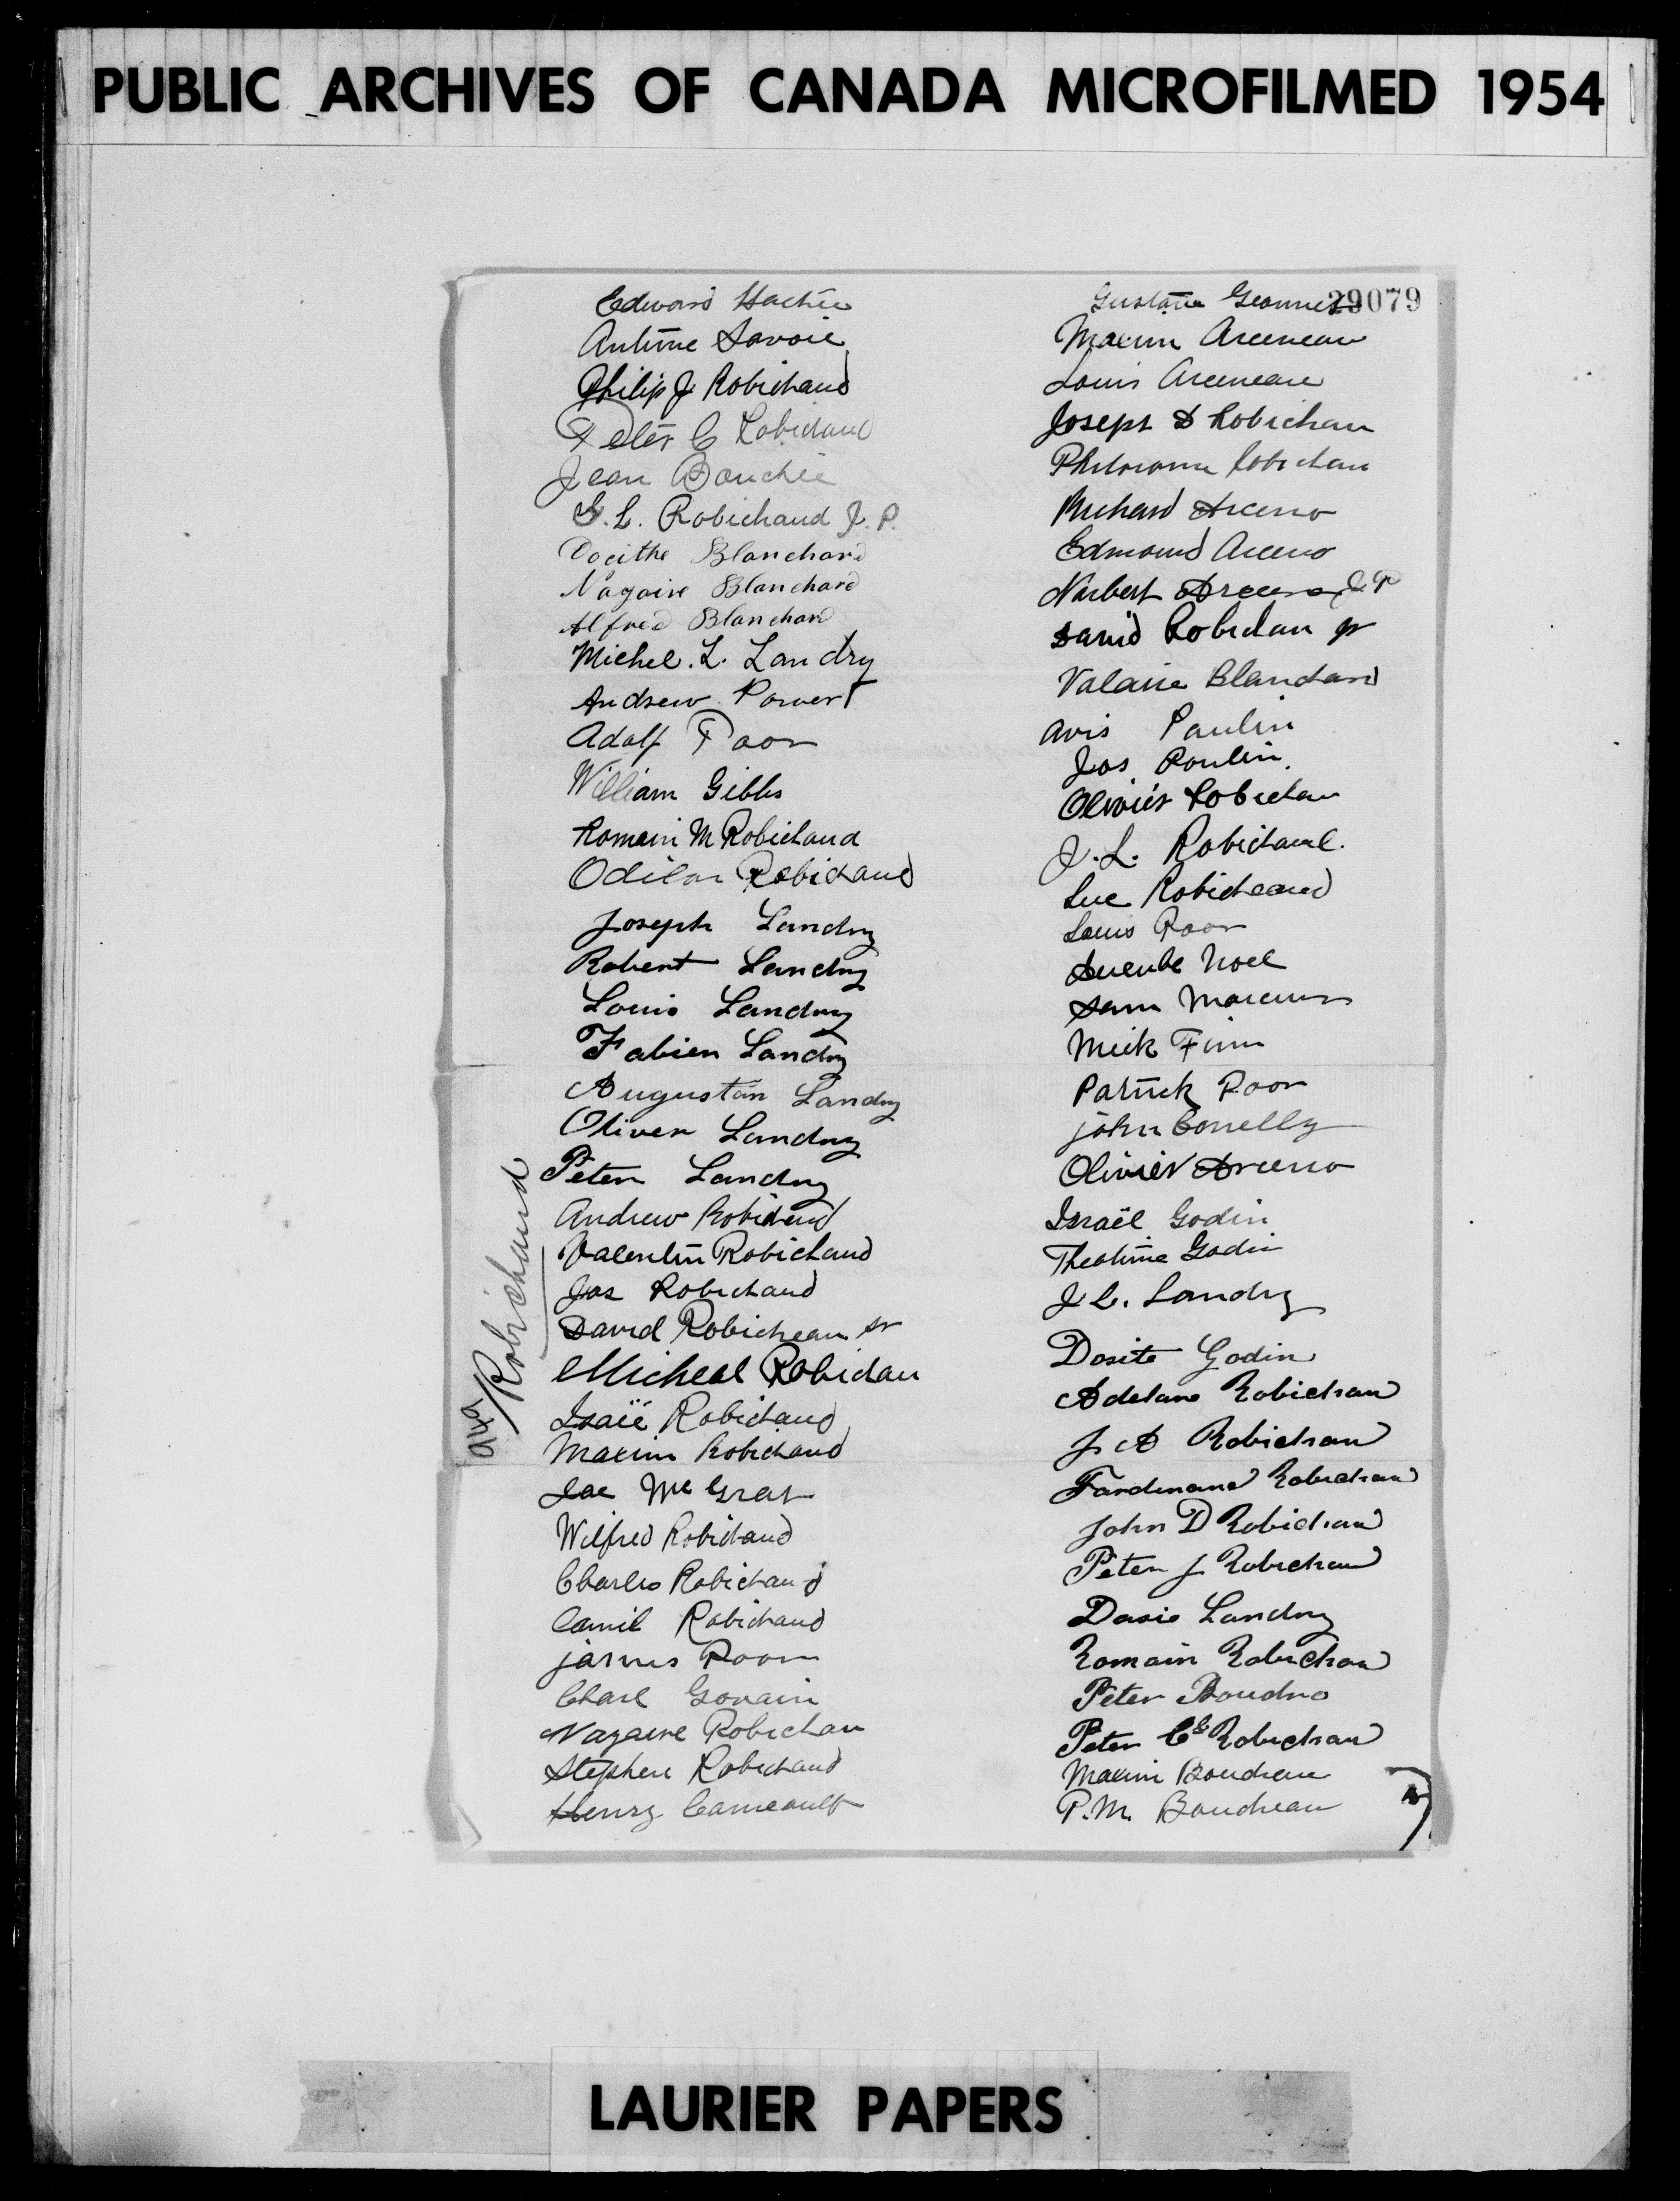 PUBLIC ARCHIVES OF CANADA MICROFILMED 1954
29079
Edward Hachie
Antime Savoie
Philip J Robichaud
Peter C Robichaud
Jean Bouchie
L. Robichaud J. P.
Docithe Blanchard
Nagaire Blanchard
Alfred Blanchard
Michel. L. Landry
Andrew
Adolf Poor
William Gibbs
Romain M Robichaud
Odilon Robichaud
Joseph Landry
Robert Landry
Louis Landry
Fabien Landry
Augustan Landry
Oliver Landry
Peter Landry
Andrew Robichaud
Valentin Robichaud
Jas Robichaud
David Robicheau sr
Micheal Robichau
Isaïe Robichaud
Maxim Robichaud
Joe Mc Grat
Wilfred Robichaud
Charles Robichaud
Camil Robichaud
James Poor
Charl
Nazaire Robichau
Stephen Robichaud
Henry
Robichaud
Gustave
Maxim Arceneau
Louis Arceneau
Joseph D Robichau
Philorome Robichau
Richard Arceno
Edmound Arceno
Norbert Arceno J P
David Robichau jr
Valarie Blanchard
Avis Paulin
Jos Poulin
Olivier Robichau
J. L. Robichaud.
Luc Robicheaud
Louis Poor
Noel
Sam
Mick Finn
Patrick Poor
John Conelly
Olivier Arceno
Israël Godin
Theotime Godin
J L. Landry
Dosite Godin
Adelare Robichaud
J A Robichaud
Fardinand Robichaud
John D Robichaud
Peter J Robichaud
Dosie Landry
Romain Robichaud
Peter Boudro
Peter Robichaud
Maxim Boudreau
P. M. Boudreau
LAURIER PAPERS